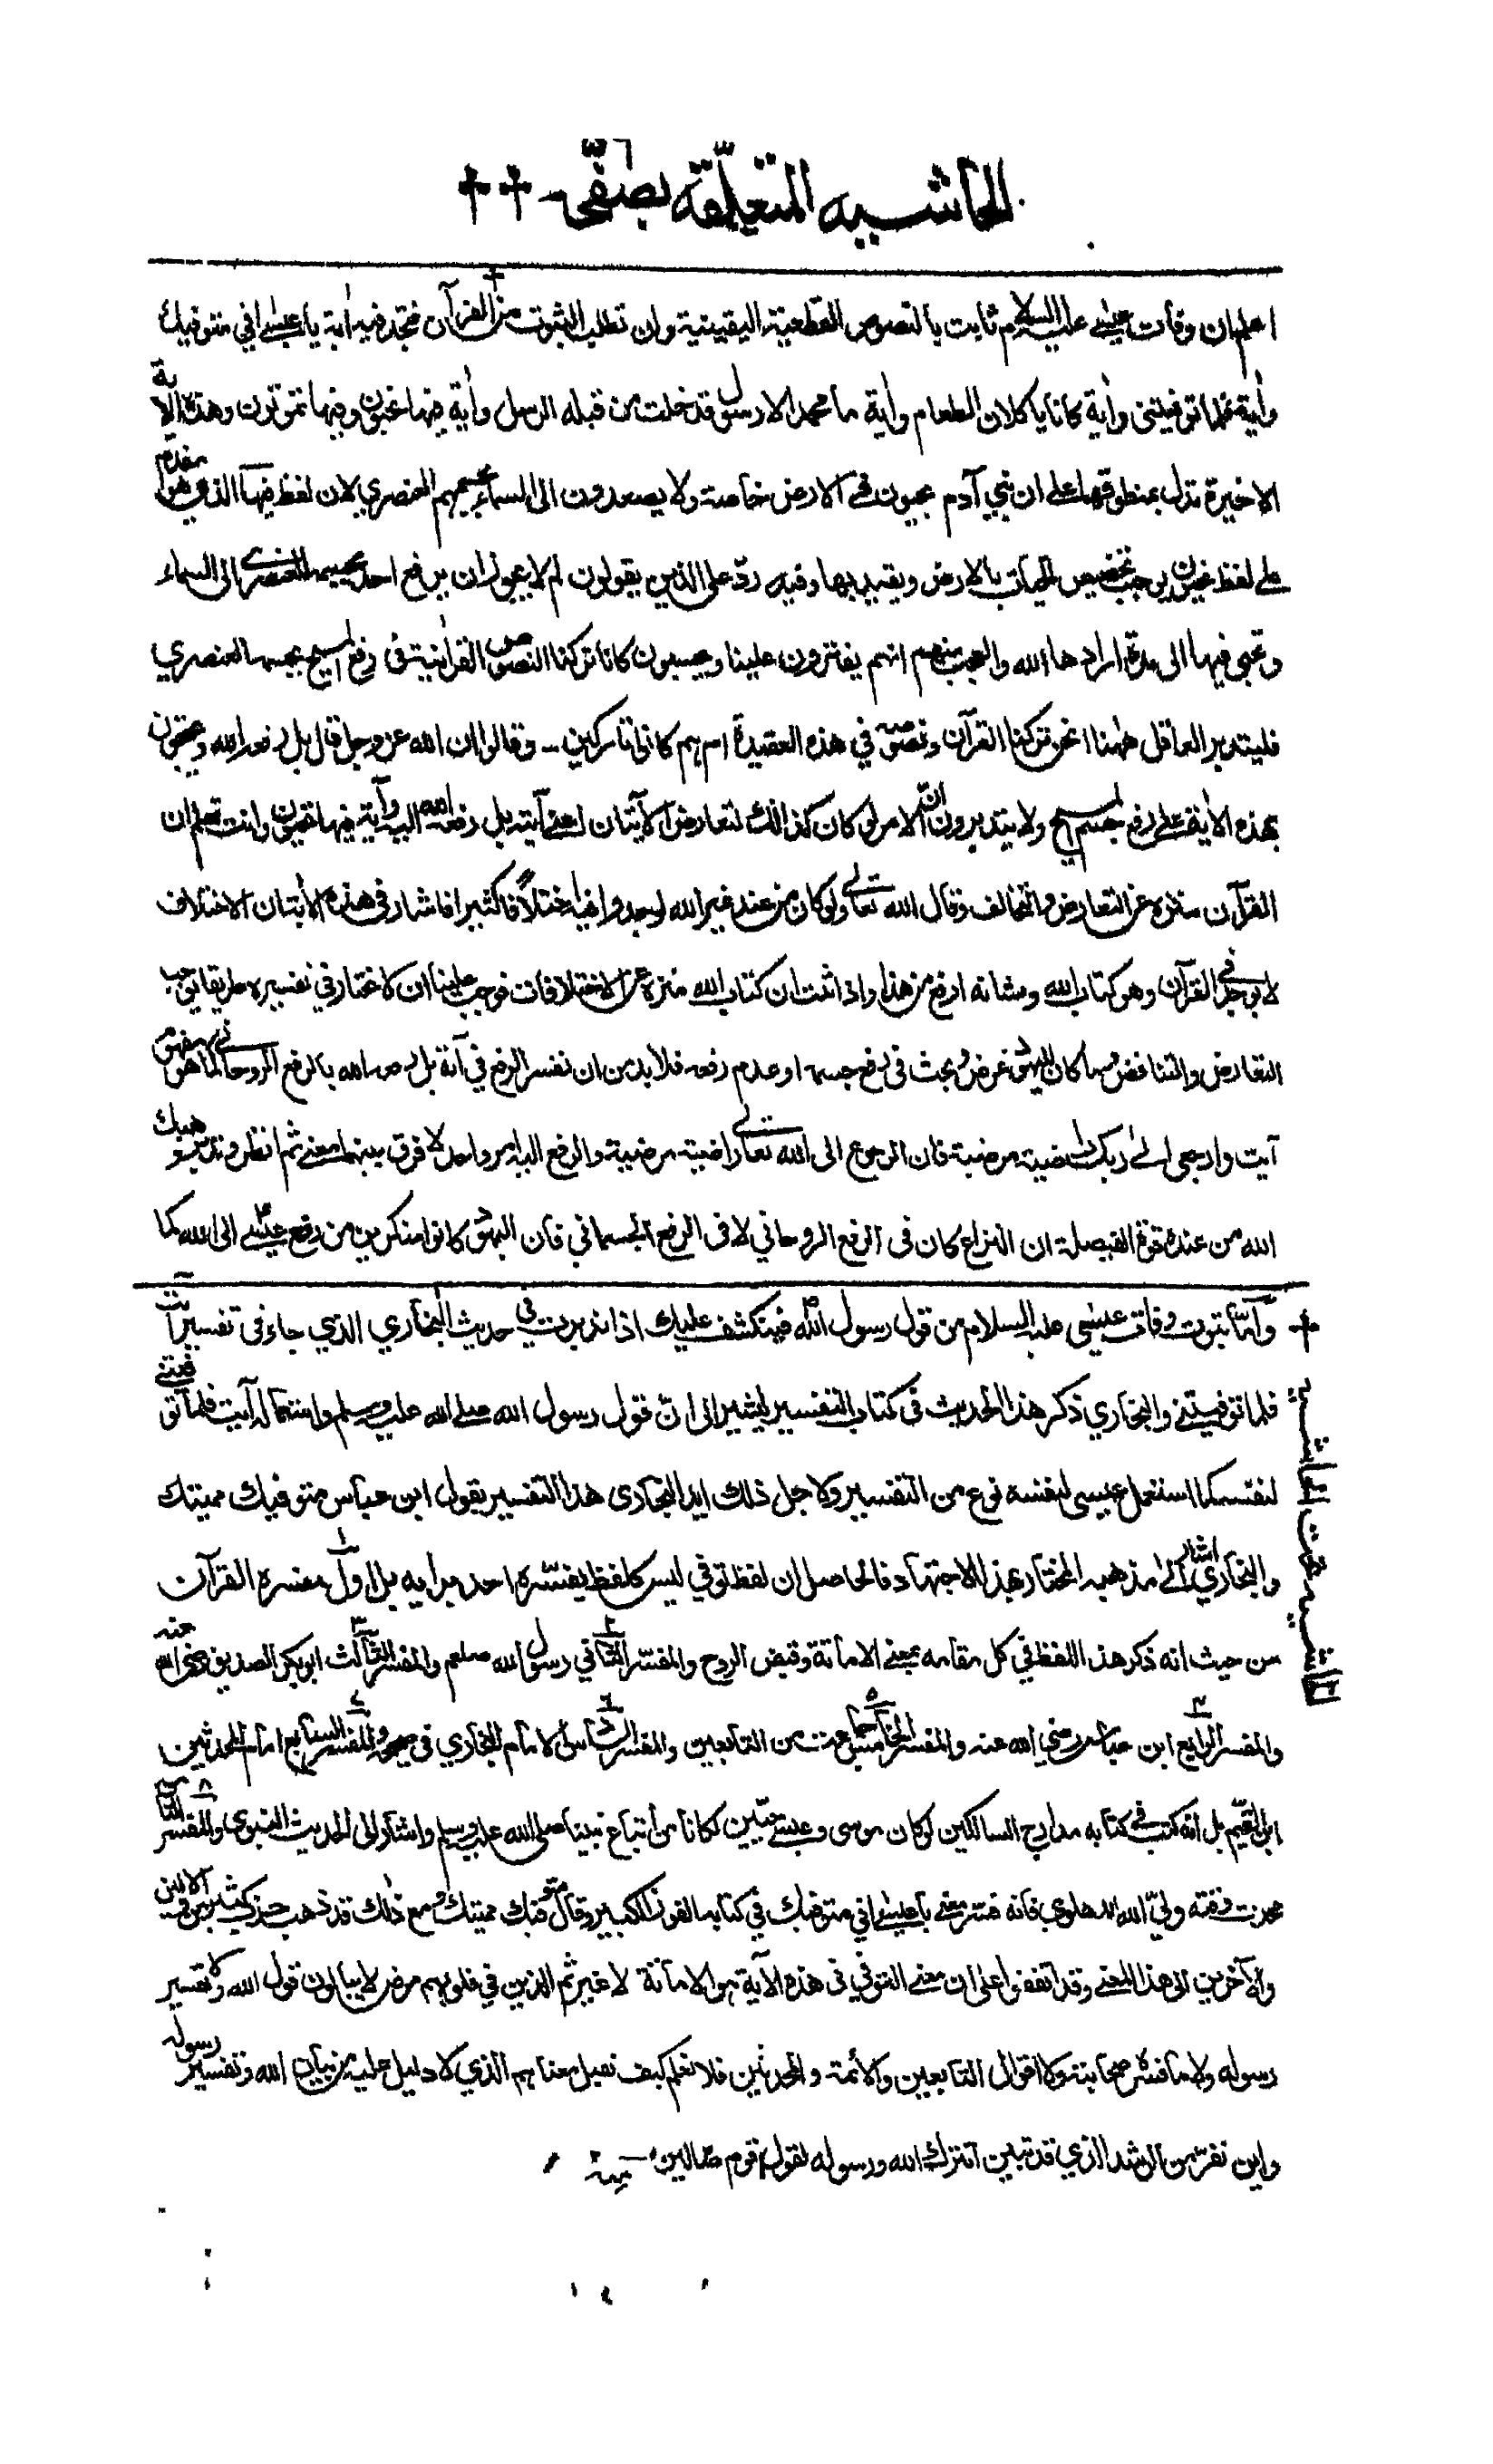 الحاشيه المتعلّقة بصفحى ٦ س
اعلم ان وفات عيسٰى عليه السلام ثابت بالنصوص القطعية اليقينية وان تطلب الثبوت من القرآن فتجد فيه اٰية يا عيسٰى اني متوفيك
واٰية فلما توفيتنى واٰية كانا ياكلان الطعام واٰية ما محمد الا رسول قد خلت من قبله الرسل واٰية فيها تحيون وفيها تموتون وهذه الاٰية
الاخيرة تدل بمنطوقها على ان بني آدم يحيون فى الارض خاصة ولا يصعدون الى السماء بجسمهم العنصري لان لفظ فيها الذي هو مقدم
على لفظ تحيون يوجب تخصيص الحيات بالارض ويقيد بها وفيه ردّ على الذين يقولون لم لا يجوز ان يرفع احد بجسمه العنصرى الى السماء
وتحيى فيها الى مدة ارادها الله والعجب منهم انهم يفترون علينا ويحسبون كانا تركنا النصوص القرآنية فى رفع المسيح بجسمه العنصري
فليتدبر العاقل ههنا انحن تركنا القرآن ونصوصه في هذه العقيدة ام هم كانوا تاركين .. وقالوا ان الله عز وجل قال بل رفعه الله ويحتجون
بهذه الاٰية على رفع جسم المسيح ولا يتدبرون ان الامر لو كان كذالك لتعارض الآيتان اعنى آيته بل رفعه الله اليه وآية فيها تحيون وانت تعلم ان
القرآن منزه عن التعارض والتخالف وقال الله تعالى ولو كان من عند غير الله لوجدوا فيه اختلافًا كثيرا فاشار فى هذه الاٰيتان الاختلاف
لا يوجد فى القرآن وهو كتاب الله وشانه ارفع من هذا واذا ثبت ان كتاب الله منزه عن الاختلافات فوجب علينا ان لا نختار في تفسيره طريقا يوجب
التعارض والتناقض وما كان لليهود غرض وبحث فى رفع جسمه او عدم رفعه فلا بد من ان نفسر الرفع في آية بل رفعه الله بالرفع الروحانى كما هو مفهوم
آيت وارجعى الى ربك راضية مرضية فان الرجوع الى الله تعالى راضية مرضية والرفع اليه امر واحد لا فرق بينهما معنى ثم انظر وتدبر يهبك
الله من عنده قوة الفيصلة ان النزاع كان فى الرفع الروحاني لا فى الرفع الجسماني فان اليهود كانوا منكرين من رفع عيسٰى الى الله كما
وامّا ثبوت وفات عيسٰى عليه السلام من قول رسول اللّه فينكشف عليك اذا تدبرت في حديث البخاري الذي جاء فى تفسير آيت
فلما توفيتني والبخاري ذكر هذا الحديث فى كتاب التفسير ليشير الى انّ قول رسول الله صلى الله عليه وسلم واستعماله آيت فلما توفيتنى
لنفسه كما استعمل عيسى لنفسه نوع من التفسير ولاجل ذلك ايد البخارى هذا التفسير بقول ابن عباس متوفيك مميتك
والبخاري اشار الى مذهبه المختار بهذا الاجتهاد فالحاصل ان لفظ توفي ليس كلفظ يفسّره احد برايه بل اول مفسره القرآن
من حيث انه ذكر هذا اللفظ في كل مقامه بمعنى الاماتة وقبض الروح والمفسّر الثاني رسول الله صلعم والمفسّر الثالث ابو بكر الصديق رضى الله عنه
والمفسر الرابع ابن عباس رضي الله عنه والمفسر الخامس جماعت من التابعين والمفسر السادس الامام البخاري فى صحيحه والمفسر السابع امام المحدثين
ابن القيّم بل انه كتب فى كتابه مدارج السالكين لو كان موسى وعيسٰى حيّين لكانا من أتباع نبينا صلى الله عليه وسلم واشار الى الحديث النبوى والمفسّر الثامن
محدث وقته وليّ الله الدهلوي فانه فسّر معنى يا عيسٰى اني متوفيك في كتابه الفوز الكبير وقال متوفيك مميتك ومع ذلك قد ذهب حزب كثير من الاولين
والآخرين الى هذا المعنى وقد اتفقوا على ان معنى التوفي فى هذه الآية هو الاماتة لا غير ثم الذين في قلوبهم مرض لا يبالون قول الله ولا تفسير
رسوله ولا ما فسّره صحابته ولا اقوال التابعين والأئمة والمحدثين فلا نعلم كيف نقبل معناهم الذي لا دليل عليه من بيان الله وتفسير رسوله
واين نفرّ من الرشد الذي قد تبين أنترك الله ورسوله لقول قوم ضالين منه
حاشيه تحت الحاشية